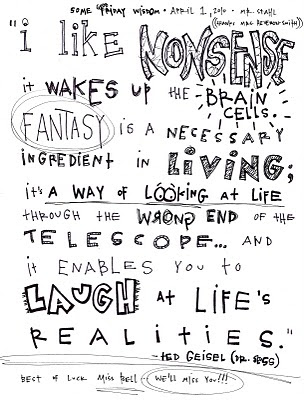 SOME FRIDAY WISDOM • APRIL 1, 2010 • MR. STAHL
"i like NONSENSE
it WAKES UP THE BRAIN
CELLS.
FANTASY is A NECESSARY
iNGREDIENT iN LiViNG;
it's A WAY OF LOOKiNG AT LiFE
THROUGH THE WRONG END OF THE
TELESCOPE... AND
it ENABLES YOU to
LAUGH At LiFE'S
REALitiES."
- TED GEISEL (DR. SEUSS)
BEST OF LUCK MISS BELL... WE'LL MISS YOU!!!